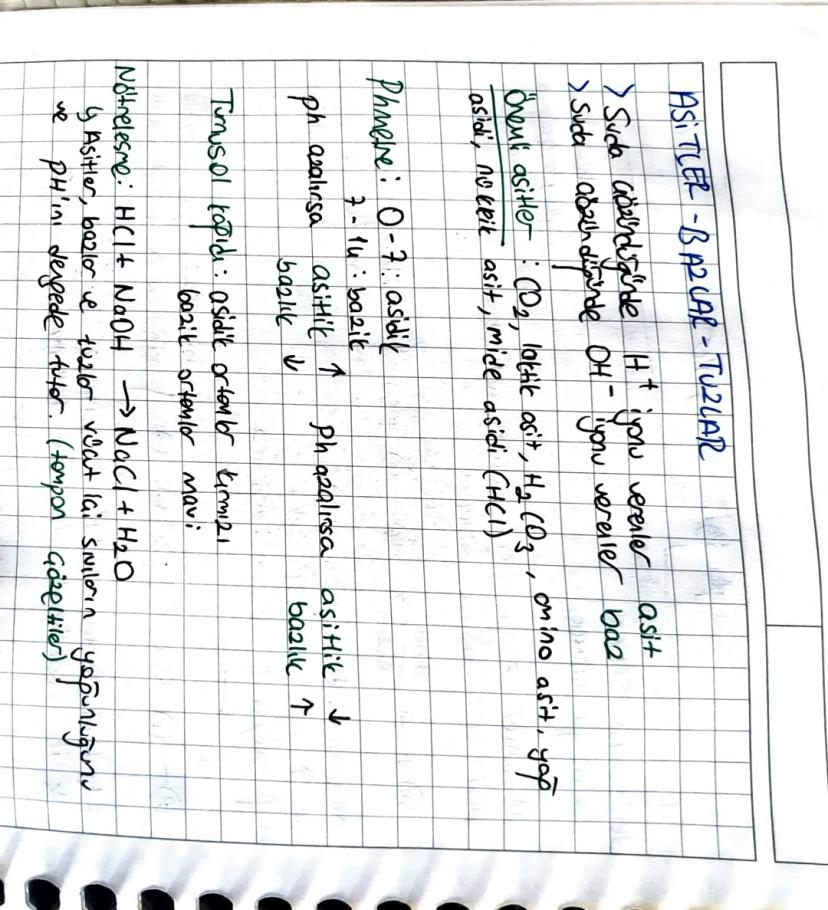 ASİTLER - BAZLAR - TUZLAR
> Suda çözündüğünde H⁺ iyonu verenler asit
> Suda çözündüğünde OH⁻ iyonu verenler baz
Önemli asitler : CO₂, laktik asit, H₂CO₃, amino asit, yağ
asidi, nükleik asit, mide asidi (HCl)
Phmetre: 0-7: asidik
7-14: bazik
ph azalırsa asitlik ↑ ph azalırsa asitlik ↓
bazlık ↓ bazlık ↑
Turnusol kağıdı: asidik ortamlar kırmızı
bazik ortamlar mavi
Nötrleşme: HCl + NaOH → NaCl + H2O
↳ Asitler, bazlar ve tuzlar vücut içi sıvıların yoğunluğunu
ve pH'ını dengede tutar. (tampon çözeltiler)